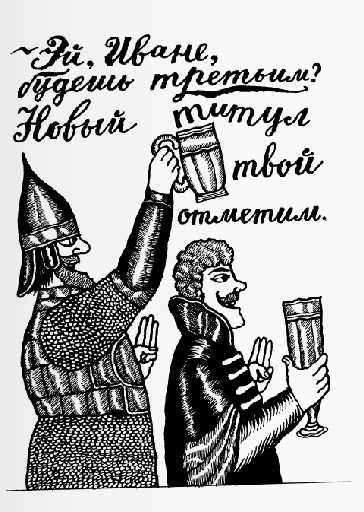 ~Эй, Иване,
будешь третьим?
Новый титул
твой
отметим.